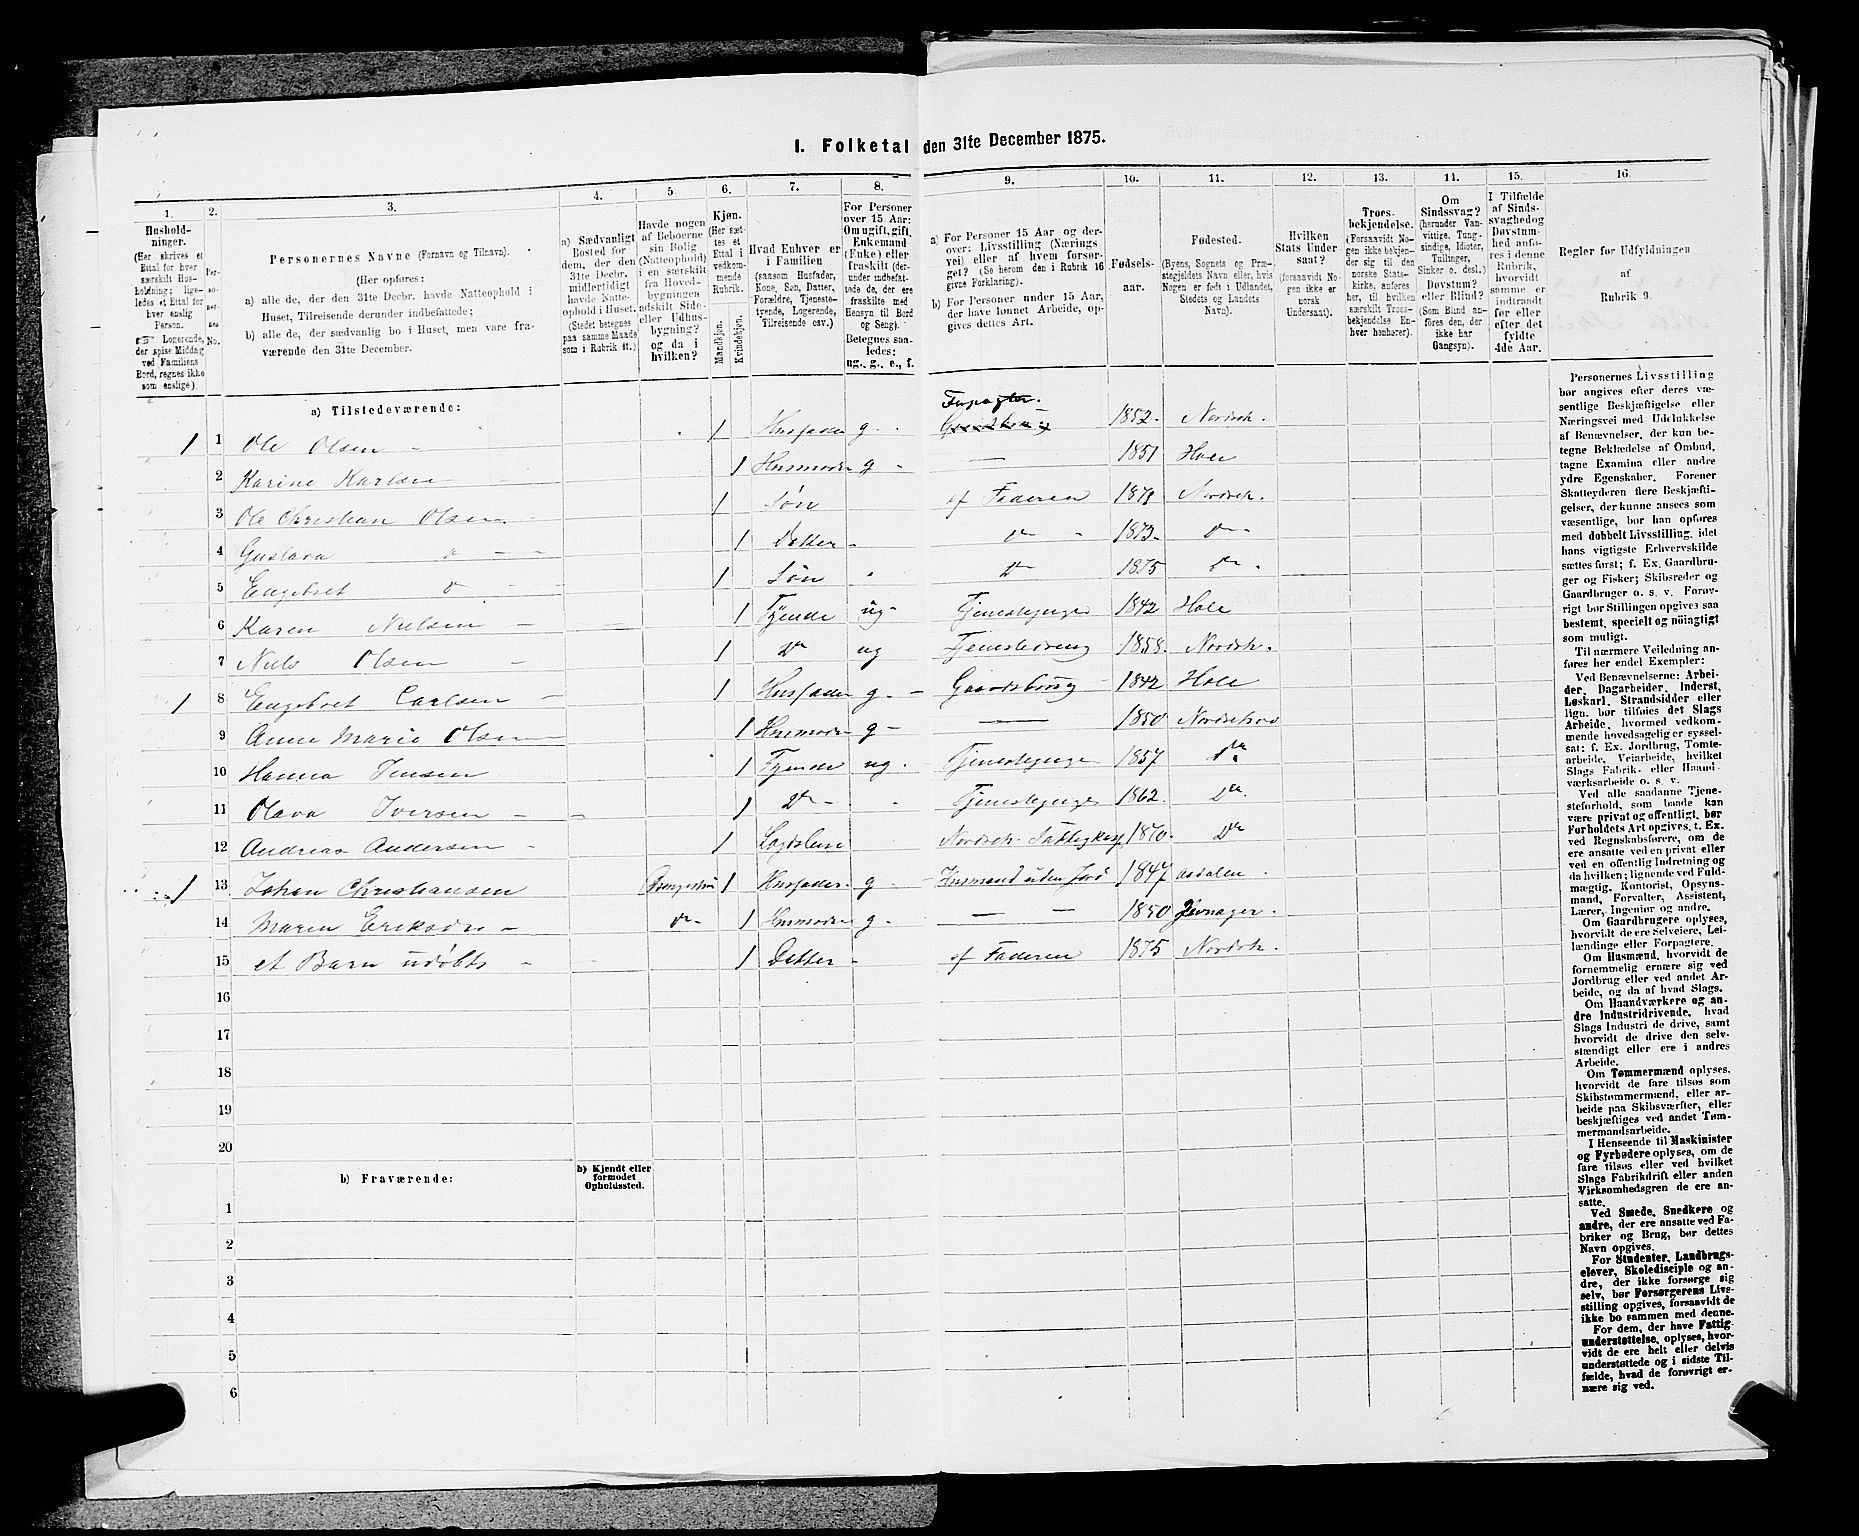 I. Folketal den 31te December 1875.
1. 2. 3. 4. 5. 6. 7. 8. 9. 10. 11. 12. 13. 14. 15. 16.
Husholdninger.
(Her skrives et Ettal for hver særskilt Husholdning; ligeledes et Ettal for hver enslig Person.
☞ Logerende, der spise Middag ved Familiens Bord, regnes ikke som enslige).
Personernes No.
Personernes Navne (Fornavn og Tilnavn).
(Her opføres:
a) alle de, der den 31te Decbr. havde Natteophold i Huset, Tilreisende derunder indbefattede;
b) alle de, der sædvanlig bo i Huset, men vare fraværende den 31te December.
a) Sædvanligt Bosted for dem, der den 31te Decbr. midlertidigt havde Natteophold i Huset. (Stedet betegnes paa samme Maade som i Rubrik 11.)
Havde nogen af Beboerne sin Bolig (Natteophold) i en særskilt fra Hovedbygningen adskilt Side- eller Udhusbygning? og da i hvilken?
Kjøn. (Her sættes et Ettal i vedkommende Rubrik.
Mandkjøn. Kvindekjøn.
Hvad Enhver er i Familien
(saasom Husfader, Kone, Søn, Datter, Forældre, Tjenestetyende, Logerende, Tilreisende osv.)
For Personer over 15 Aar: Om ugift, gift, Enkemand (Enke) eller fraskilt (derunder indbefattede de, der ere fraskilte med Hensyn til Bord og Seng).
Betegnes saaledes: ug., g., e., f.
a) For Personer 15 Aar og derover: Livsstilling (Næringsvei) eller af hvem forsørget? (Se herom den i Rubrik 16 givne Forklaring).
b) For Personer under 15 Aar, der have lønnet Arbeide, opgives dettes Art.
Fødselsaar.
Fødested.
(Byens, Sognets og Præstegjeldets Navn eller, hvis Nogen er født i Udlandet, Stedets og Landets Navn).
Hvilken Stats Undersaat?
(forsaavidt Nogen ikke er norsk Undersaat).
Troesbekjendelse.
(Forsaavidt Nogen ikke bekjender sig til den norske Statskirke, anføres her, hvilket særskilt Troesbekjendelse Enhver henhører).
Om Sindssvag? (herunder Vanvittige, Tungsindige, Idioter, Tullinger, Sinker o. desl.) Døvstum? eller Blind? (Som Blind anføres den, der ikke har Gangsyn).
I Tilfælde af Sindssvaghed og Døvstumhed anføres i denne Rubrik, hvorvidt samme er indtraadt før eller efter det fyldte 4de Aar.
Regler for Udfyldningen
af
Rubrik 9.
a) Tilstedeværende:
Forpagter.
1 1 Ole Olsen 1 Husfader g. Gaardbrug 1852. Nordreh.
2 Karine Karlsen 1 Husmoder g 1851 Hole
3 Ole Christian Olsen. 1 Søn af Faderen 1871 Nordreh.
4 Gustava do 1 Datter do 1873. do
5 Engebret do 1 Søn do 1875 do
6 Karen Nielsen 1 Tyende ug Tjenestepige 1842 Hole
7 Niels Olsen 1 do ug Tjenestedreng 1858. Nordreh.
1 8 Engebret Carlsen 1 Husfader g. Gaardsbrug 1842 Hole
9 Anne Marie Olsen 1 Husmoder g 1850 Nordrehov
10 Hanna Jensen 1 Tyende ug. Tjenestepige 1857 do
11 Olava Iversen 1 do Tjenestepige 1862. do
12 Andreas Andersen 1 Lægdslem Nordreh. Fattigkas 1870. do
1 13 Johan Christiansen 1 Husfader g Husmand uden Jord 1847 Aadalen
14 Maren Eriksdr 1 Husmoder g. 1850 Jevnager.
do
15 et Barn udøbts 1 Datter af Faderen 1875 Nordreh.
16
17
18
19
20
b) Fraværende:
b) Kjendt eller formodet Opholdssted.
1
2
3
4
5
6
Personernes Livsstilling
bør angives efter deres væ-
sentlige Beskjæftigelse eller
Næringsvei med Udelukkelse
af Benævnelser, der kun be-
tegne Beklædelse af Ombud,
tagne Examina eller andre
ydre Egenskaber. Forener
Skatteyderen flere Beskjæfti-
gelser, der kunne ansees som
væsentlige, bør han opføres
med dobbelt Livsstilling, idet
hans vigtigste Erhvervskilde
sættes først; f. Ex. Gaardbru-
ger og Fisker; Skibsreder og
Gaardbruger o. s. v. Forøv-
rigt bør Stillingen opgives saa
bestemt, specielt og nøiagtigt
som muligt.
Til nærmere Veiledning an-
føres her endel Exempler:
Ved Benævnelserne: Arbei-
der, Dagarbeider, Inderst,
Løskarl, Strandsidder eller
lign. bør tilføies det Slags
Arbeide, hvormed vedkom-
mende hovedsagelig er syssel-
sat: f. Ex. Jordbrug, Tomte-
arbeide, Veiarbeide, hvilket
Slags Fabrik- eller Haand-
værksarbeide o. s. v.
Ved alle saadanne Tjene-
steforhold, som baade kan
være privat og offentligt, bør
Forholdets Art opgives, t. Ex.
ved Regnskabsførere, om de
ere ansatte ved en privat eller
ved en offentlig Indretning og
da hvilken; lignende ved Fuld-
mægtig, Kontorist, Opsyns-
mand, Forvalter, Assistent,
Lærer, Ingeniør og andre.
Om Gaardbrugere oplyses,
hvorvidt de ere Selveiere, Lei-
lændinge eller Forpagtere.
Om Husmænd, hvorvidt de
fornemmelig ernære sig ved
Jordbrug eller ved andet Ar-
beide, og da af hvad Slags.
Om Haandværkere og an-
dre Industridrivende, hvad
Slags Industri de drive, samt
hvorvidt de drive den selv-
stændigt eller ere i andres
Arbeide.
Om Tømmermænd oplyses,
hvorvidt de fare tilsøs som
Skibstømmermænd, eller ar-
beide paa Skibsværfter, eller
beskjæftiges ved andet Tøm-
mermandsarbeide.
I Henseende til Maskinister
og Fyrbødere oplyses, om de
fare tilsøs eller ved hvilket
Slags Fabrikdrift eller anden
Virksomhedsgren de ere an-
satte.
Ved Smede, Snedkere og
andre, der ere ansatte ved Fa-
briker og Brug, bør dettes
Navn opgives.
For Studenter, Landbrugs-
elever, Skoledisciple og an-
dre, der ikke forsørge sig
selv, bør Forsørgerens Livs-
stilling opgives, forsaavidt de
ikke bo sammen med denne.
For dem, der have Fattig-
understøttelse, oplyses, hvor-
vidt de ere helt eller delvis
understøttede og i sidste Til-
fælde, hvad de forøvrigt er-
nære sig ved.